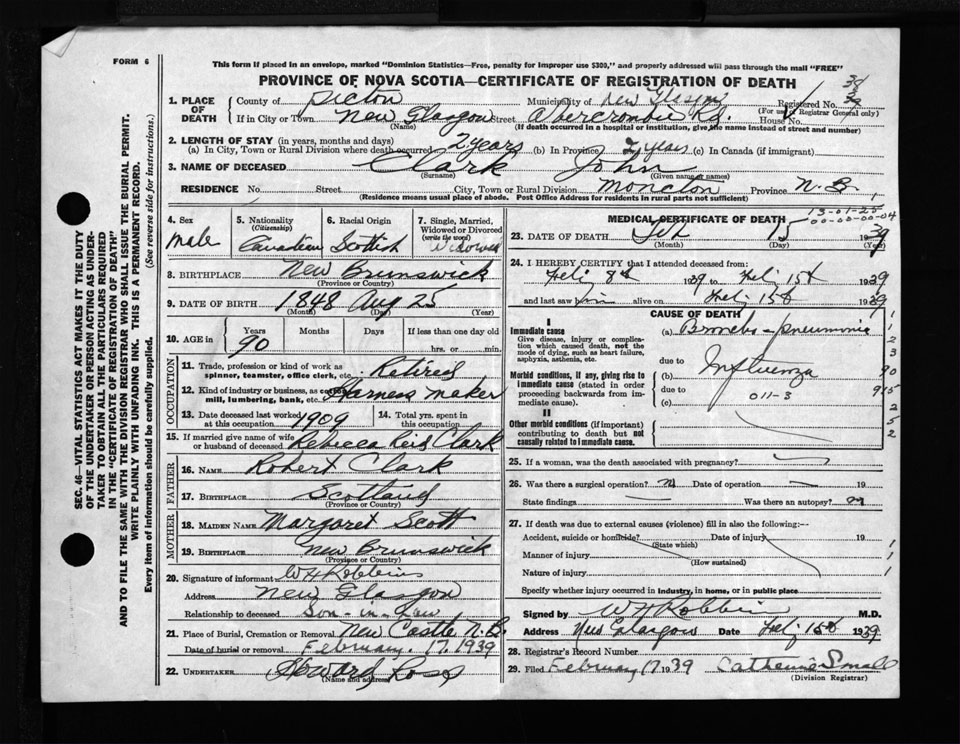 FORM 6
This form if placed in an envelope, marked "Dominion Statistics—Free, penalty for improper use $300," and properly addressed will pass through the mail "FREE"
PROVINCE OF NOVA SCOTIA—CERTIFICATE OF REGISTRATION OF DEATH
1. PLACE OF DEATH County of Pictou Municipality of New Glasgow Registered No.
(For use of Registrar General only)
If in City or Town New Glasgow Street Abercrombie Rd. House No.
(Name) (If death occurred in a hospital or institution, give the name instead of street and number)
2. LENGTH OF STAY (in years, months and days)
(a) In City, Town or Rural Division where death occurred 2 years (b) In Province 2 years (c) In Canada (if immigrant)
3. NAME OF DECEASED Clark John
(Surname) (Given name or names)
RESIDENCE No. Street City, Town or Rural Division Moncton Province N.B.
(Residence means usual place of abode. Post Office Address for residents in rural parts not sufficient)
4. Sex male
5. Nationality (Citizenship) Canadian
6. Racial Origin Scottish
7. Single, Married, Widowed or Divorced (write the word) Widower
8. BIRTHPLACE New Brunswick
(Province or Country)
9. DATE OF BIRTH 1848 Aug 25
(Month) (Day) (Year)
10. AGE in Years Months Days If less than one day old
90 hrs. or min.
OCCUPATION
11. Trade, profession or kind of work as spinner, teamster, office clerk, etc. Retired
12. Kind of industry or business, as cotton mill, lumbering, bank, etc. Harness maker
13. Date deceased last worked at this occupation 1909
14. Total yrs. spent in this occupation
15. If married give name of wife or husband of deceased Rebecca Reid Clark
FATHER
16. NAME Robert Clark
17. BIRTHPLACE Scotland
(Province or Country)
MOTHER
18. MAIDEN NAME Margaret Scott
19. BIRTHPLACE New Brunswick
(Province or Country)
20. Signature of informant W H Robbins
Address New Glasgow
Relationship to deceased Son-in-Law
21. Place of Burial, Cremation or Removal New Castle N.B.
Date of burial or removal February. 17. 1939
22. UNDERTAKER Howard Ross
(Name and address)
MEDICAL CERTIFICATE OF DEATH
13-01-25
00-00-00-04
23. DATE OF DEATH Feb 15 1939
(Month) (Day) (Year)
24. I HEREBY CERTIFY that I attended deceased from:
Feb 8th 1939 to Feb 15th 1939
and last saw him alive on Feb 15th 1939
CAUSE OF DEATH
I
Immediate cause (a) Broncho-pneumonia
Give disease, injury or complication which caused death, not the mode of dying, such as heart failure, asphyxia, asthenia, etc.
due to
Morbid conditions, if any, giving rise to immediate cause (stated in order proceeding backwards from immediate cause).
(b) Influenza
due to
011-3
(c)
II
Other morbid conditions (if important) contributing to death but not causally related to immediate cause.
25. If a woman, was the death associated with pregnancy?
26. Was there a surgical operation? no Date of operation 19
State findings Was there an autopsy? no
27. If death was due to external causes (violence) fill in also the following:—
Accident, suicide or homicide? Date of injury 19
(State which)
Manner of injury
(How sustained)
Nature of injury
Specify whether injury occurred in industry, in home, or in public place
Signed by W H Robbins M.D.
Address New Glasgow Date Feb 15th 1939
28. Registrar's Record Number
29. Filed February 17 1939 Catherine Small
(Division Registrar)
SEC. 46—VITAL STATISTICS ACT MAKES IT THE DUTY OF THE UNDERTAKER OR PERSON ACTING AS UNDERTAKER TO OBTAIN ALL THE PARTICULARS REQUIRED IN THE "CERTIFICATE OF REGISTRATION OF DEATH"
AND TO FILE THE SAME WITH THE DIVISION REGISTRAR WHO SHALL ISSUE THE BURIAL PERMIT.
WRITE PLAINLY WITH UNFADING INK. THIS IS A PERMANENT RECORD.
Every item of information should be carefully supplied. (See reverse side for instructions.)